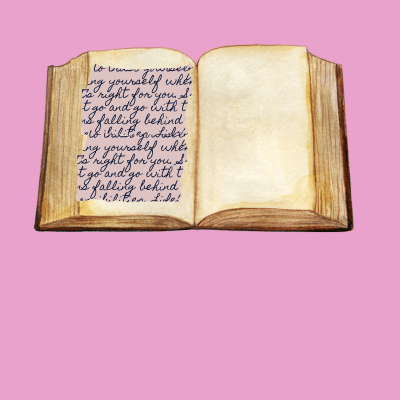 ng yourself whe
s right for you. S
t go and go with t
s falling behind
ng yourself whe
s right for you. S
t go and go with t
s falling behind